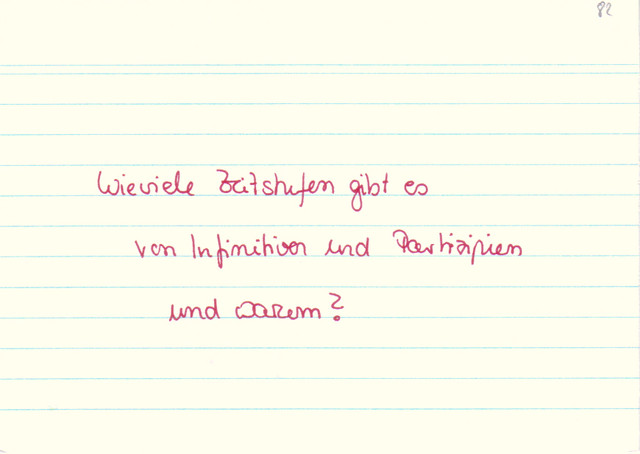 82
Wieviele Zeitstufen gibt es
von Infinitiven und Partizipien
und warum?